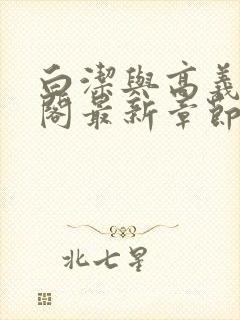 白潔與高義
閣最新章節
北七星